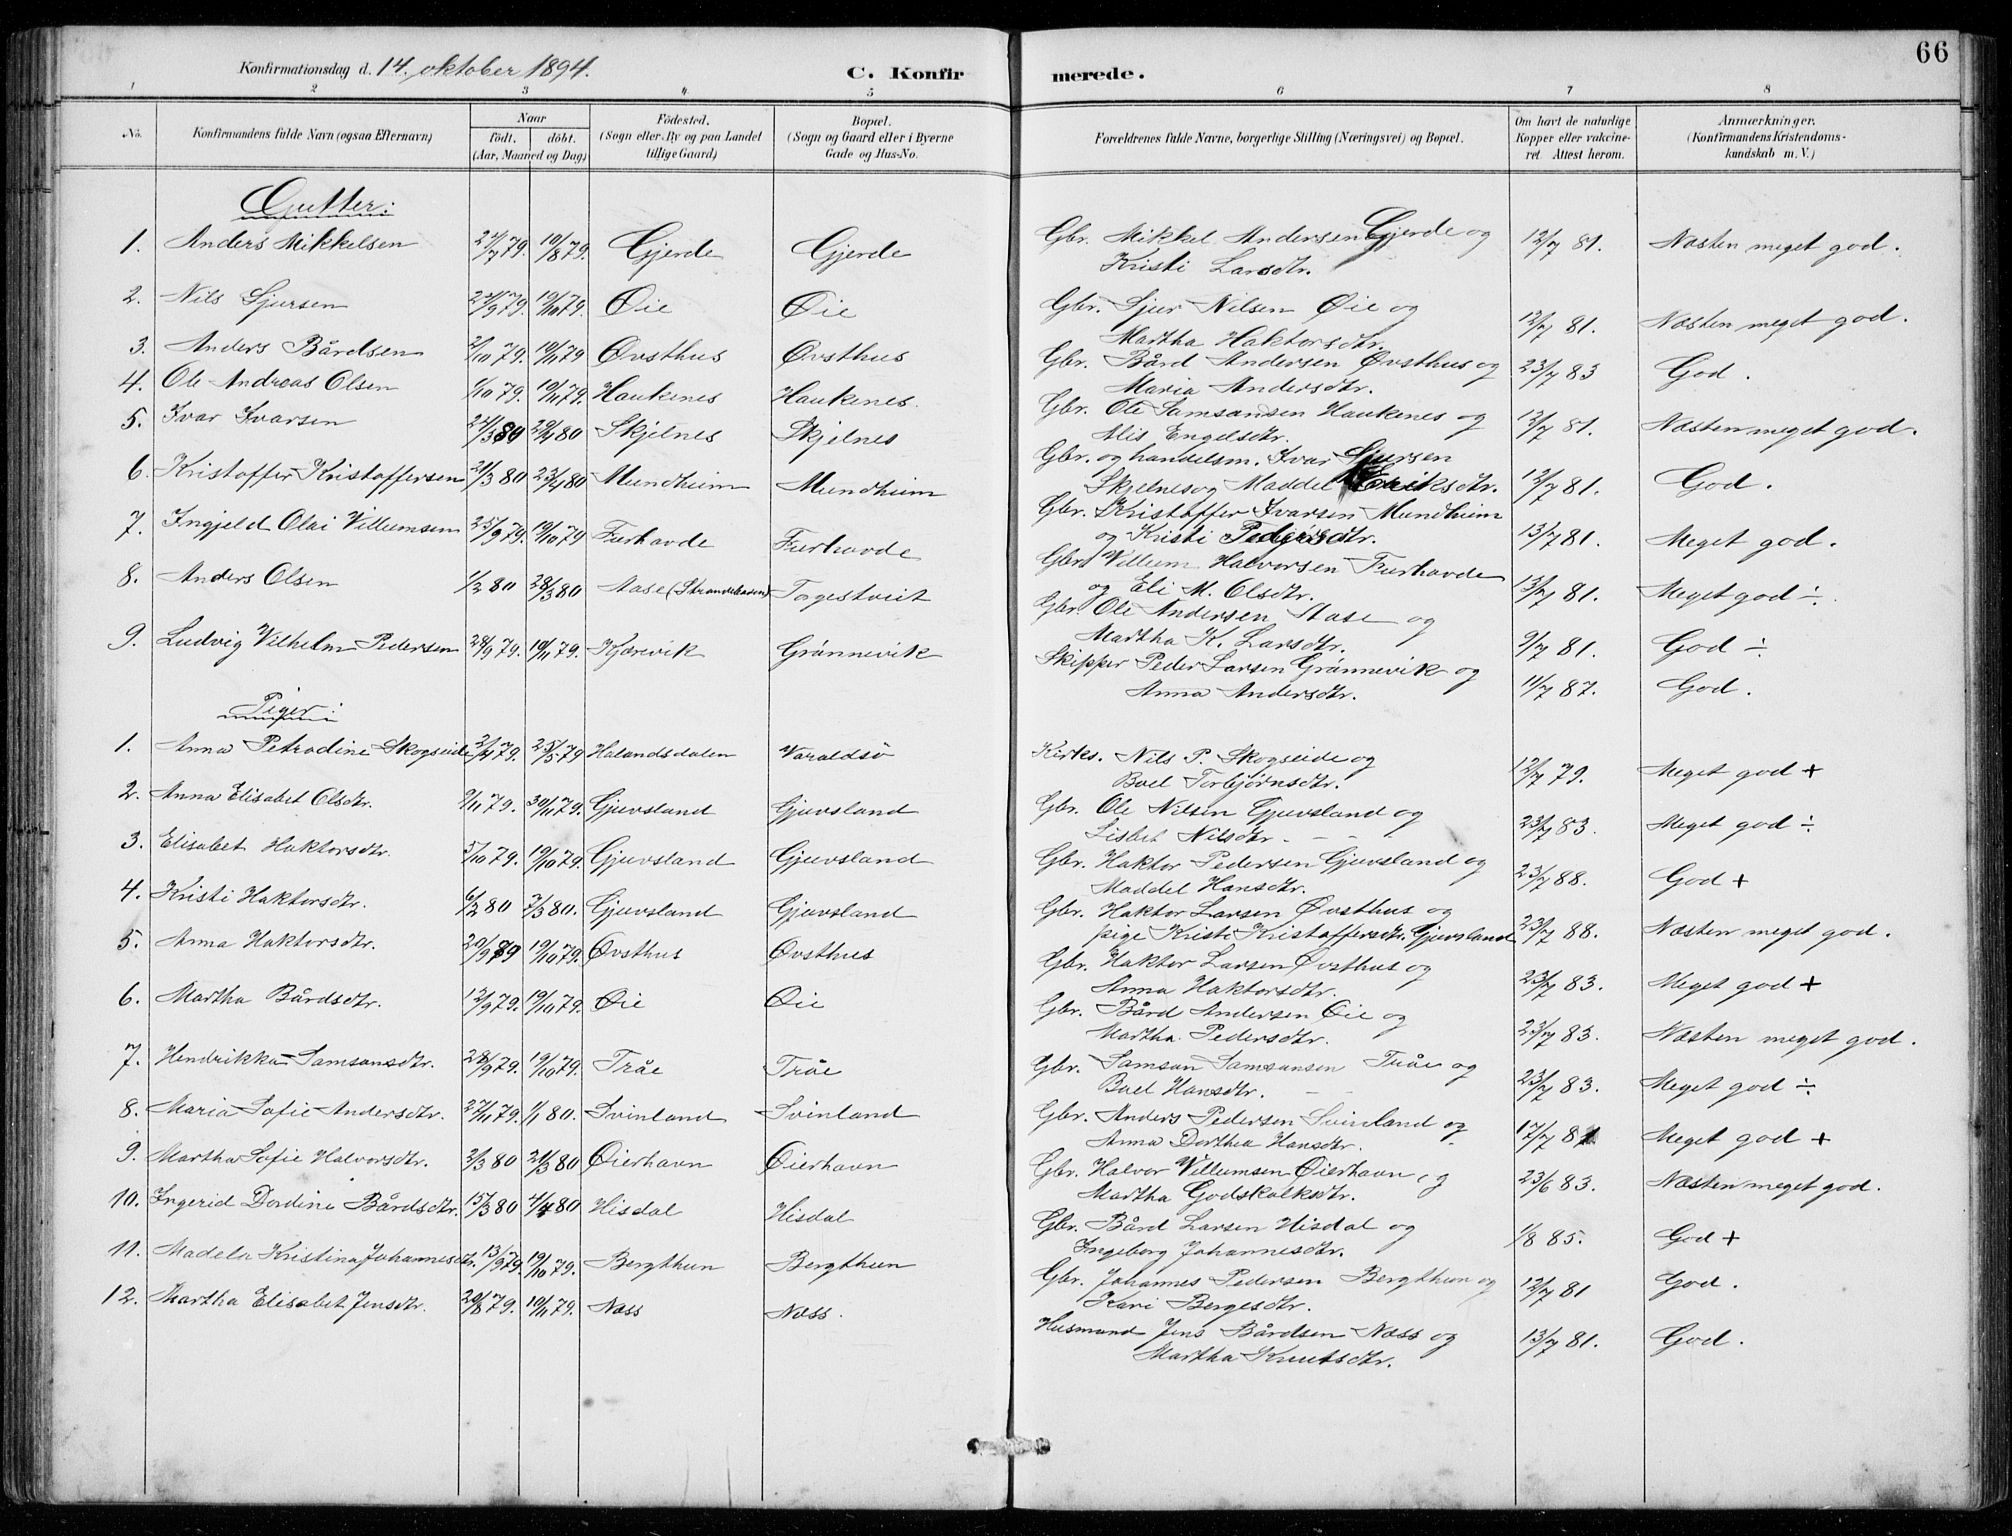 66
Konfirmationsdag d. 14. oktober 1894. C. Konfirmerede.
1 2 3 4. 5 6 7 8
No. Konfirmandens fulde Navn (ogsaa Efternavn) Naar født. døbt. (Aar, Maaned og Dag) Fødested. (Sogn eller By og paa Landet tillige Gaard) Bopæl. (Sogn og Gaard eller i Byerne Gade og Hus-No. Forældrenes fulde Navne, borgerlige Stilling (Næringsvei) og Bopæl. Om havt de naturlige Kopper eller vakcineret. Attest herom. Anmærkninger. (Konfirmandens Kristendomskundskab m. V.)
Gutter:
1. Anders Mikkelsen 24/7 79. 10/8 79. Gjerde Gjerde Gbr. Mikkel Andersen Gjerde og 12/7 81. Næsten meget god.
Kristi Larsdtr.
2. Nils Sjursen 24/9 79. 19/10 79. Øie Øie Gbr. Sjur Nilsen Øie og 12/7 81. Næsten meget god.
Martha Haktorsdtr.
3. Anders Bårdsen 2/10 79. 19/11 79 Øvsthus Øvsthus Gbr. Bård Andersen Øvsthus og 23/7 83 God.
Maria Andersdtr.
4. Ole Andreas Olsen 1/10 79. 19/11 79. Haukenes Haukenes. Gbr. Ole Samsonsen Haukenes og 12/7 81. Næsten meget god.
Alis Engelsdtr.
5. Ivar Ivarsen 24/3 80 29/4 80 Skjelnes Skjelnes Gbr. og handelsm. Ivar Sjursen
Skjelnes og Maddel Eriksdtr. 12/7 81. God.
6. Kristoffer Kristoffersen 21/3 80 23/4 80 Mundheim Mundheim Gbr. Kristoffer Ivarsen Mundheim 13/7 81. Meget god.
og Kristi Pedersdtr.
7. Ingjeld Olai Villumsen 25/9 79. 19/10 79 Furhovde Furhovde Gbr. Villum Halvorsen Furhovde 13/7 81. Meget god ÷.
og Eli M. Olsdtr.
8. Anders Olsen 1/2 80 28/3 80 Aase (Strandebarm) Torgestveit Gbr. Ole Andersen Aase og 9/7 81. God ÷
Martha K. Larsdtr.
9. Ludvig Vilhelm Pedersen 28/9 79. 19/11 79. Kjærevik Grønnevik Skipper Peder Larsen Grønnevik og 11/7 87. God.
Anna Andersdtr.
Piger:
1. Anna Petrodine Skogseide 2/4 79. 25/5 79 Hålandsdalen Varaldsø Kirks. Nils P. Skogseide og 12/7 79. Meget god +
Boel Torbjørnsdtr.
2. Anna Elisabet Olsdtr. 9/11 79. 30/11 79. Gjuvsland Gjuvsland Gbr. Ole Nilsen Gjuvsland og 23/7 83. Meget god ÷
Lisbet Nilsdtr.
3. Elisabet Haktorsdtr. 5/10 79. 19/10 79. Gjuvsland Gjuvsland Gbr. Haktor Pedersen Gjuvsland og 23/7 88. God +
Maddel Hansdtr.
4. Kristi Haktorsdtr. 6/2 80 7/3 80. Gjuvsland Gjuvsland Gbr. Haktor Larsen Øvsthus og 23/7 88. Næsten meget god.
pige Kristi Kristoffersdtr. Gjuvsland
5. Anna Haktorsdtr. 20/9 79 19/10 79. Øvsthus Øvsthus Gbr. Haktor Larsen Øvsthus og 23/7 83. Meget god +
Anna Haktorsdtr.
6. Martha Bårdsdtr. 12/9 79. 19/10 79. Øie Øie Gbr. Bård Andersen Øie og 23/7 83. Næsten meget god.
Martha Pedersdtr.
7. Hendrikka Samsonsdtr. 28/9 79. 19/10 79. Tråe Tråe Gbr. Samson Samsonsen Tråe og 23/7 83. Meget god ÷
Boel Hansdtr.
8. Maria Sofie Andersdtr. 27/11 79. 1/1 80. Svinland Svinland Gbr. Anders Pedersen Svinland og 12/7 81. Meget god +
Anna Dorthea Hansdtr.
9. Martha Sofie Halvorsdtr. 2/3 80 21/3 80 Øierhavn Øierhavn Gbr. Halvor Villumsen Øierhavn og 23/6 83. Næsten meget god.
Martha Godskalksdtr.
10. Ingerid Dordine Bårdsdtr. 15/3 80 4/4 80 Hisdal Hisdal Gbr. Bård Larsen Hisdal og 1/8 85. God +
Ingeborg Johannesdtr.
11. Madela Kristina Johannesdtr. 13/9 79. 19/10 79. Bergthun Bergthun Gbr. Johannes Pedersen Bergthun og 12/7 81 God.
Kari Bergesdtr.
12. Martha Elisabet Jensdtr. 20/8 79. 19/11 79. Næss Næss. Husmand Jens Bårdsen Næss og 13/7 81. God.
Martha Knutsdtr.